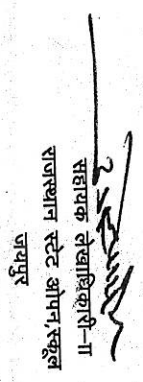 सहायक लेखाधिकारी-II
राजस्थान स्टेट ओपन,स्कूल
जयपुर